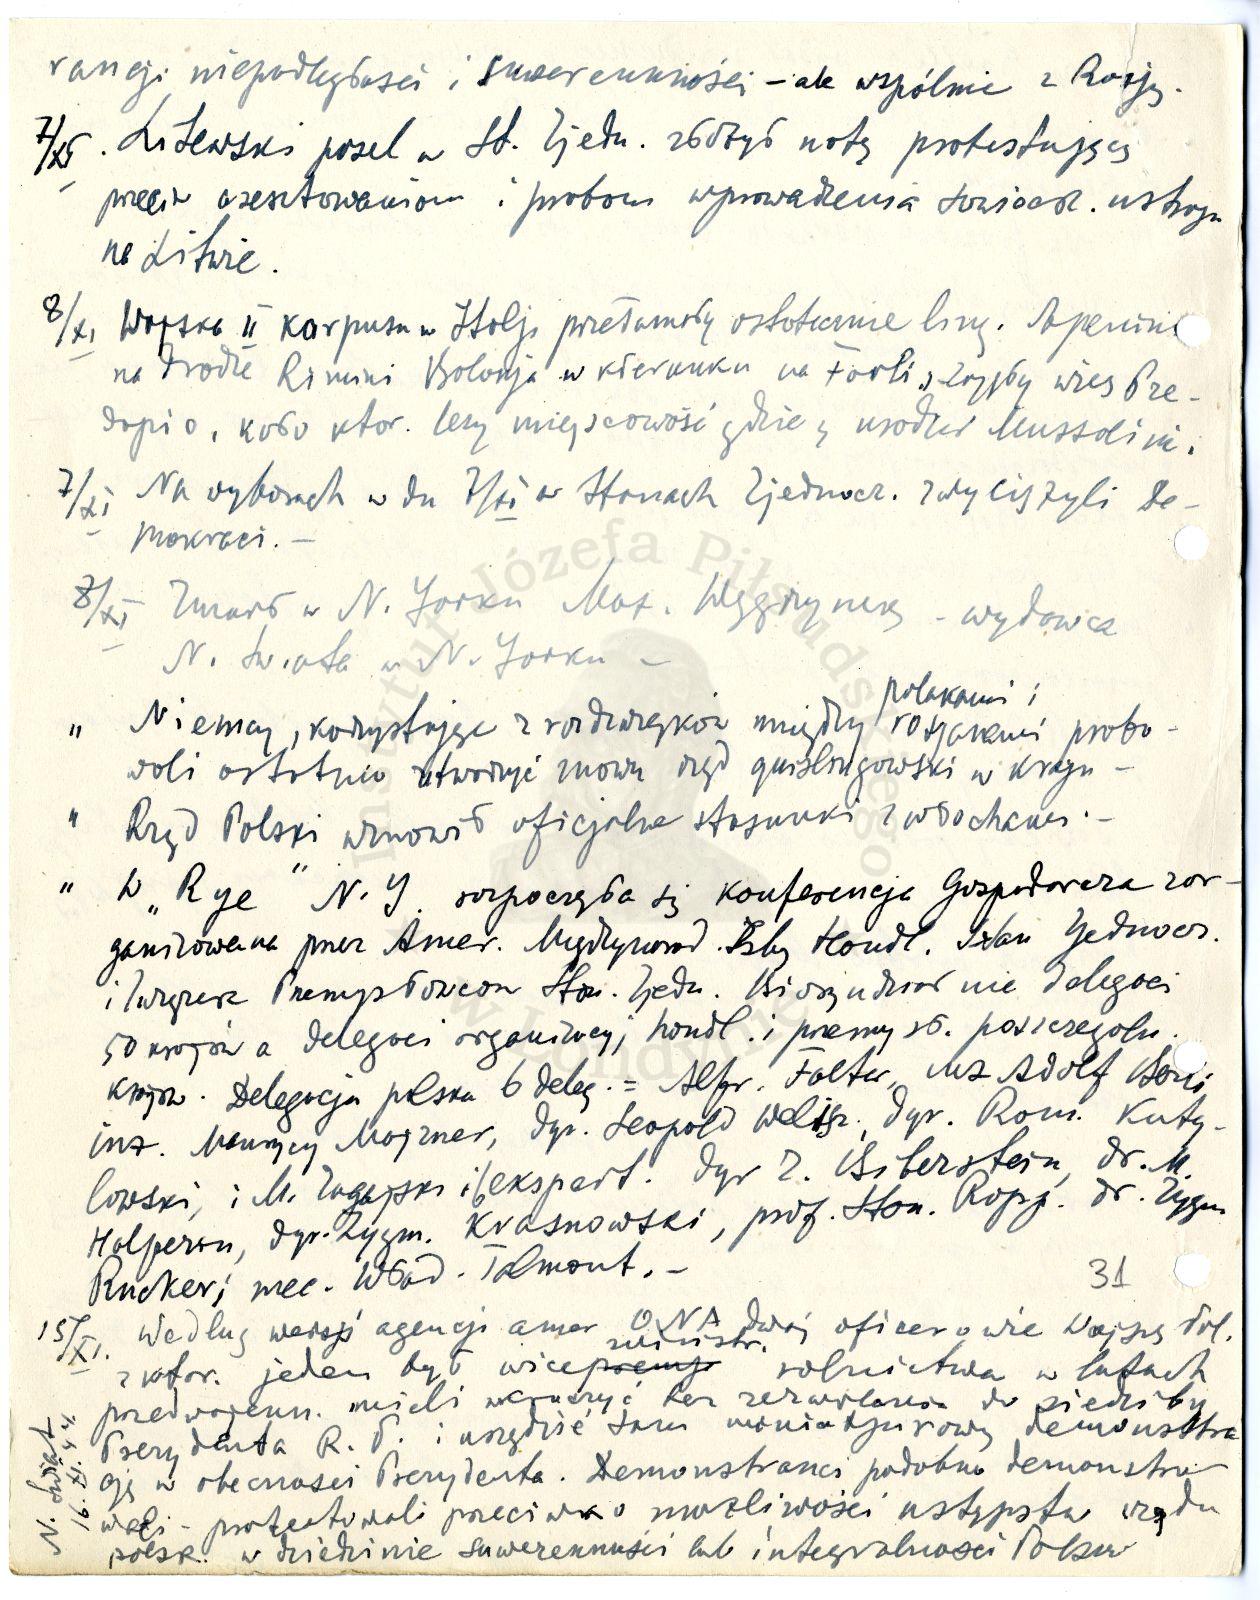 rancji niepodległości i suwerenności – ale wspólnie z Rosją.
7/XI. Litewski poseł w St. Zjedn. złożył notę protestującą
przeciw aresztowaniom i próbom wprowadzenia sowieck. ustroju
na Litwie.
8/XI Wojska II Korpusu w Italji przełamały ostatecznie linję. Apeniny
na drodze Rimini Bolonja w kierunku na Forli, zajęły wieś Pre-
dapio, koło któr. leży miejscowość gdzie ę urodził Mussolini.
7/XI Na wyborach w dn 7/XI w Stanach Zjednocz. zwyciężyli De-
mokraci. –
8/XI Zmarł w N. Jorku Max. Węgrzynek – wydawca
N. Świata w N. Jorku –
" Niemcy, korzystając z rozdźwięków między polakami i rosjanami próbo-
wali ostatnio utworzyć znowu rząd quislingowski w kraju –
" Rząd Polski wznowił oficjalne stosunki z Włochami. –
" W „Rye" N.J. rozpoczęła się konferencja Gospodarcza zor-
ganizowana przez Amer. Międzynarod. Izbę Handl. Stan Zjednocz.
i Związek Przemysłowców Stan. Zjedn. Biorą udział nie delegaci
50 krajów a delegaci organizacyj handl. i przemysł. poszczególn.
krajów. Delegacja polska 6 deleg. = Alfr. Falter, Adolf
inż. Maurycy Mojzner, dyr. Leopold Welisz, dyr. Rom. Kuty-
łowski, i M. Zagajski i 6 ekspert. dyr Z. Biberstein, dr. M.
Halpern, dyr. Zygm. Krasnowski, prof. Stan. Ropp. dr. Zygm
Rucker i mec. Wład. Talmont. –
31
15/XI. Według wersji agencji amer ONA dwaj oficerowie Wojska Pol.
z któr. jeden był wiceministr. rolnictwa w latach
przedwojenn. mieli wkroczyć bez zezwolenia do siedziby
Prezydenta R.P. i urządzić tam miniaturową demonstra
cję w obecności Prezydenta. Demonstranci podobno demonstro
wali – protestowali przeciwko możliwości ustępstw rządu
polsk. w dziedzinie suwerenności lub integralności Polski
N. Świat
16.XI.44
Instytut Józefa Piłsudskiego
w Londynie